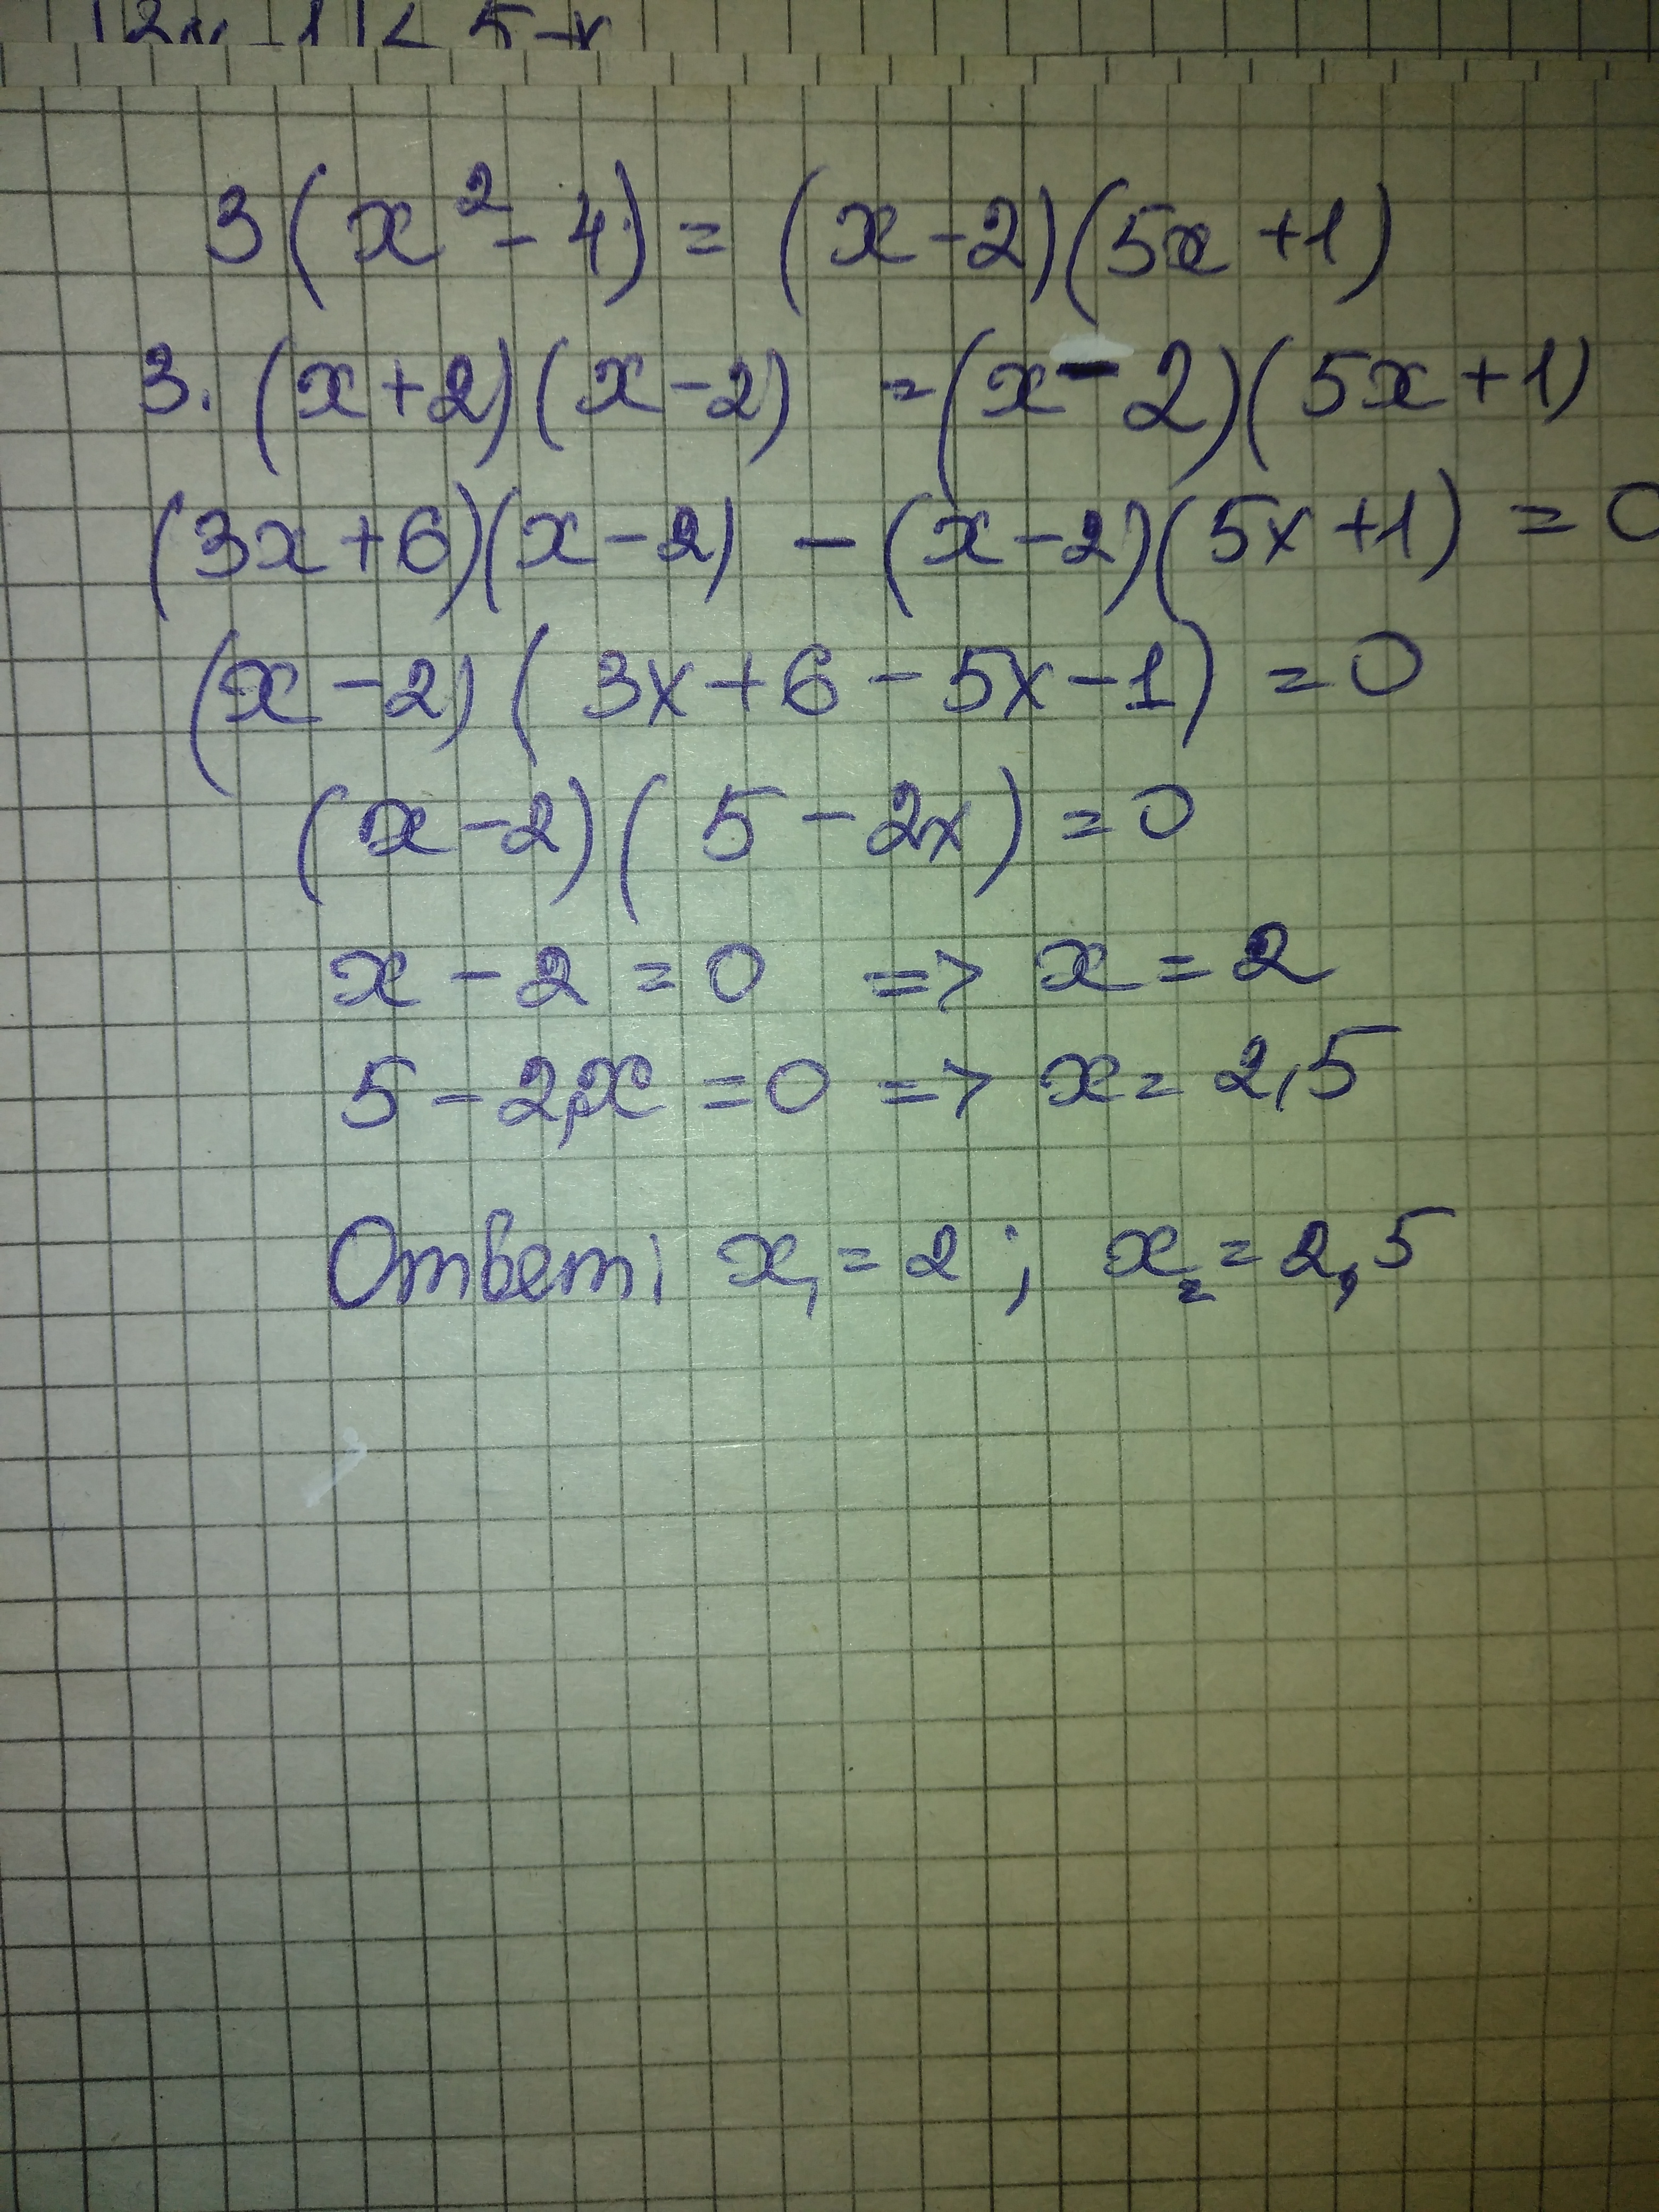 |2x-1|< 5-x
3(x²-4)=(x-2)(5x+1)
3.(x+2)(x-2) =(x-2)(5x+1)
(3x+6)(x-2) - (x-2)(5x+1) = 0
(x-2)(3x+6-5x-1) =0
(x-2)(5-2x)=0
x-2=0 => x=2
5-2x=0 => x=2,5
Ответ: x₁=2; x₂=2,5